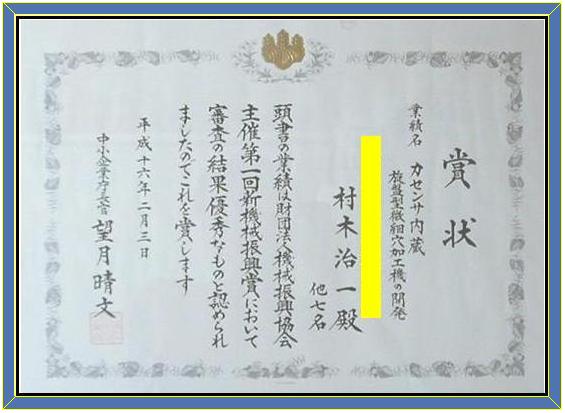 賞状
業績名 力センサ内蔵
旋盤型微細穴加工機の開発
村木治一殿
他七名
頭書の業績は財団法人機械振興協会
主催第一回新機械振興賞において
審査の結果優秀なものと認められ
ましたのでこれを賞します
平成十六年二月三日
中小企業庁長官 望月晴文